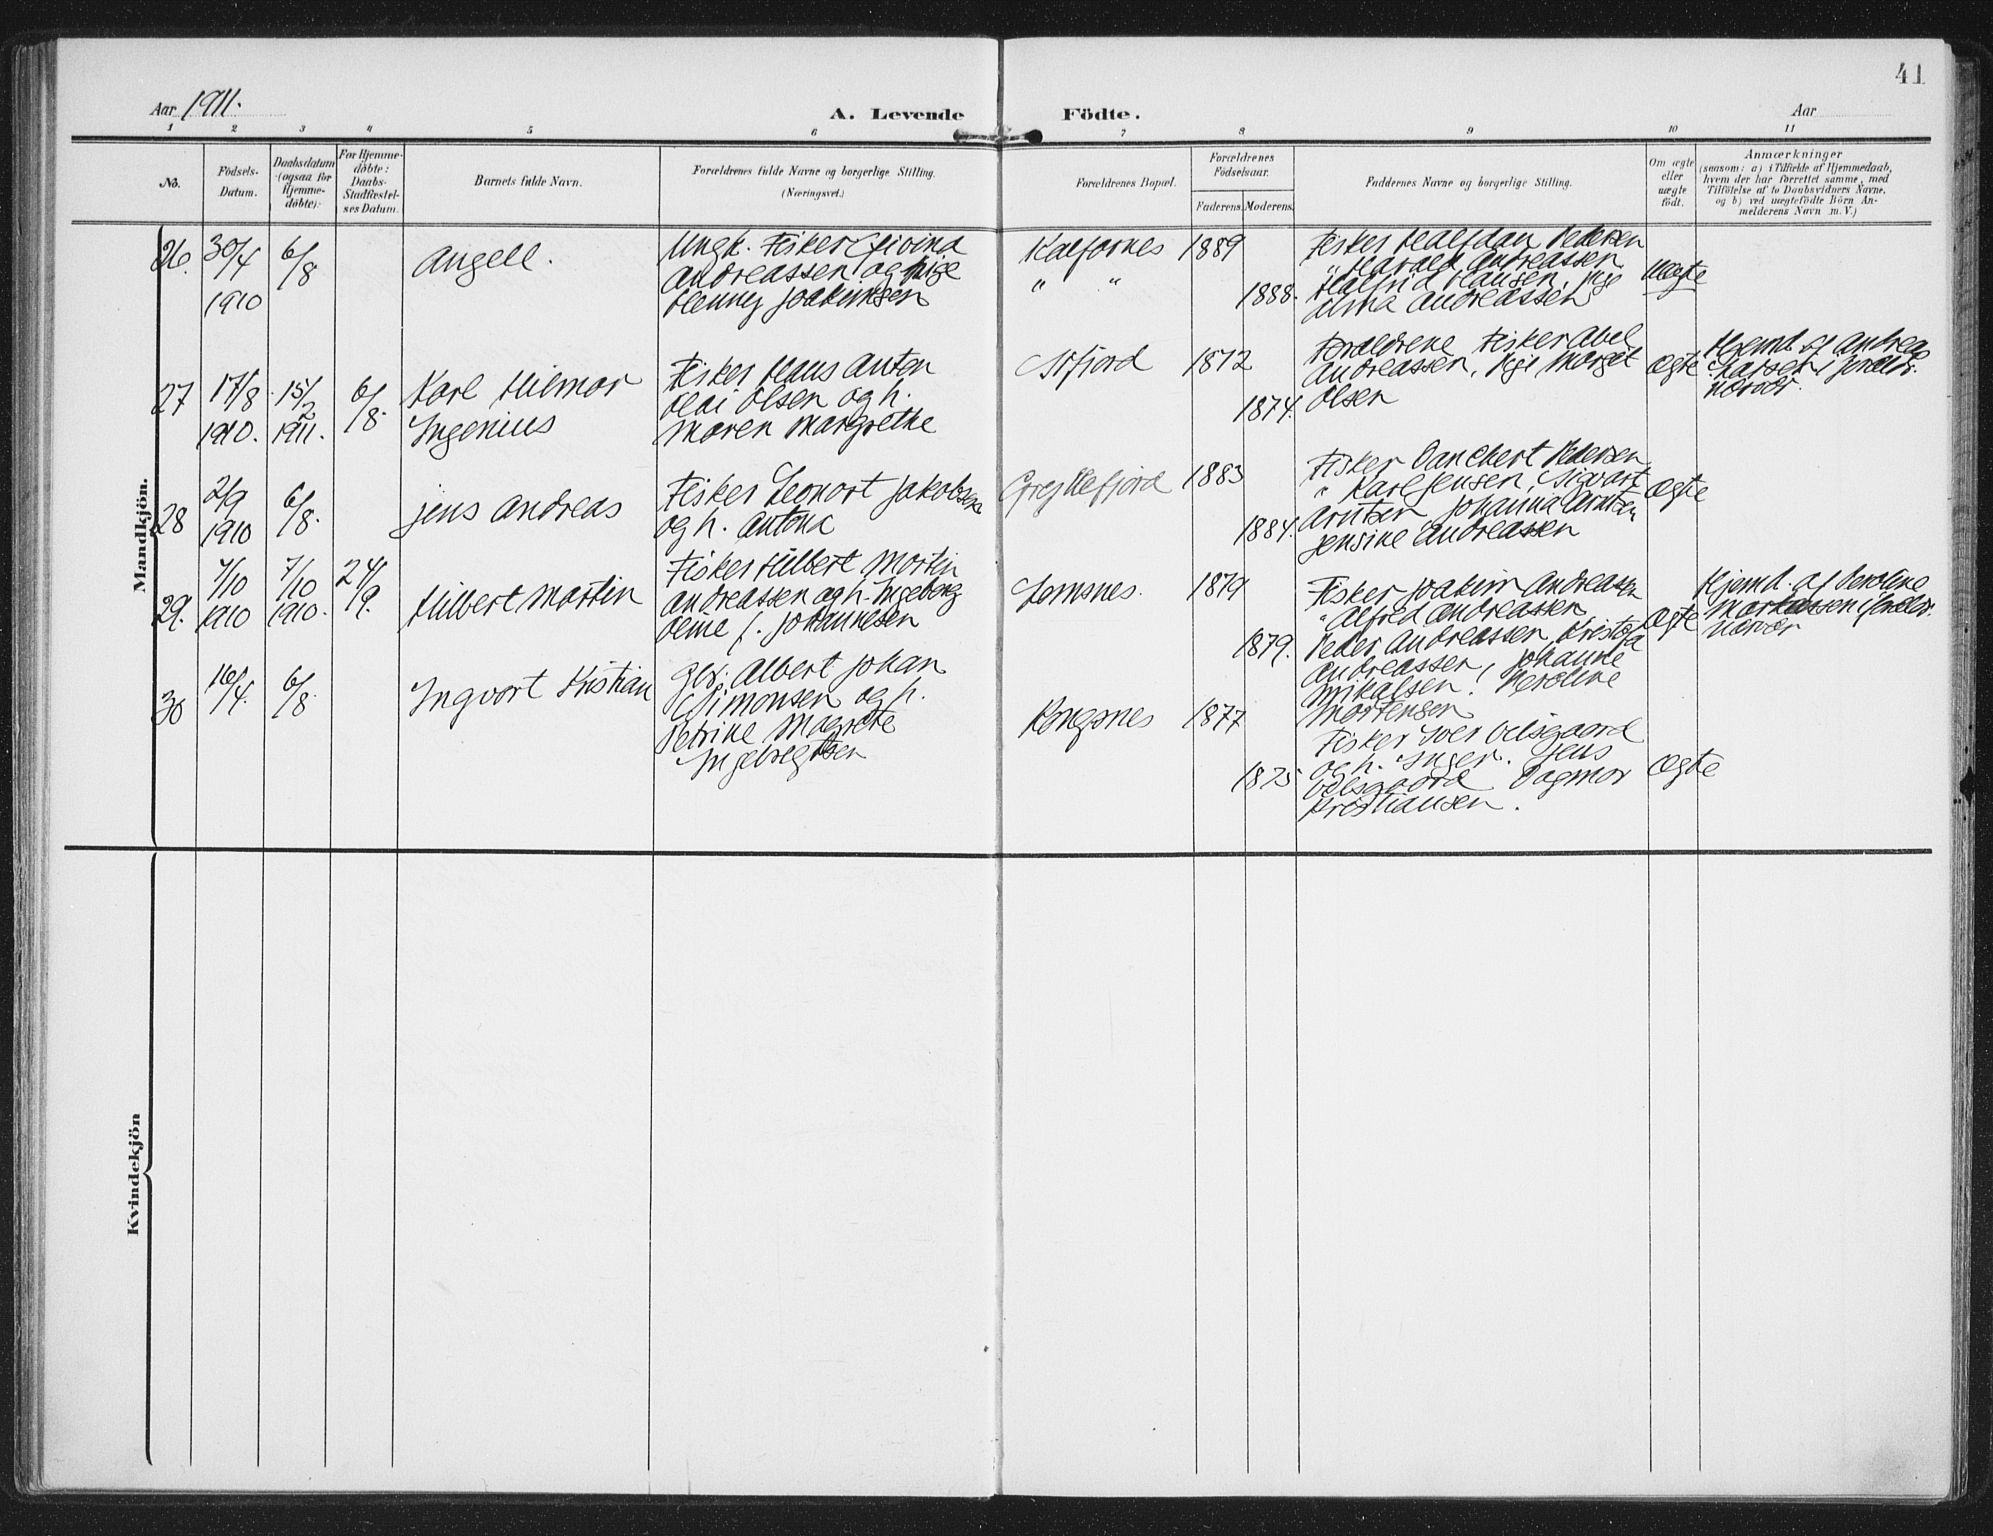 41
Aar 1911.
A. Levende Födte.
Aar
1 2 3 4 5 6 7 8 9 10 11
No.
Födsels-
Datum.
Daabsdatum
(ogsaa for
Hjemme-
döbte).
For Hjemme-
döbte:
Daabs-
Stadfæstel-
ses Datum.
Barnets fulde Navn.
Forældrenes fulde Navne og borgerlige Stilling.
(Næringsvei.)
Forældrenes Bopæl.
Forældrenes
Födselsaar.
Faderens. Moderens.
Faddernes Navne og borgerlige Stilling.
Om ægte
eller
uægte
födt.
Anmærkninger
(saasom: a) i Tilfælde af Hjemmedaab,
hvem der har forrettet samme, med
Tilföielse af to Daabsvidners Navne,
og b) ved uægtefödte Börn An-
melderens Navn m. V.)
Mandkjön.
26.
30/4
1910
6/8
Angell.
Ungk. Fisker
Andreassen og Pige
Henny Joakimsen
Kalfarnes
" "
1889
1888.
Fisker Halfdan Pedersen
" Harald Andreassen
Halfrid Hansen, Pige
Alma Andreassen
Uægte
27
17/8
1910.
15/2
1911.
6/8.
Karl Hilmar
Ingenius
Fisker Hans Anton
Olai Olsen og h.
Maren Margrethe
Ifjord
1872
1874.
Forældrene, Fisker Abel
Andreassen, Pige Marget
Olsen
Ægte
Hjemd. af Andrea
Larsen i foreldr.
nærvær.
28
2/9
1910
6/8.
Jens Andreas
Fisker Leonart Jakobsen
og h. Antona
Gryllefjord
1883
1884.
Fisker Danchert Pedersen
" Karl Jensen, Sigvart
Arntsen, Johanna Arntsen
Jensine Andreassen
Ægte
29.
1/10
1910
7/10
1910.
24/9.
Hilbert Martin
Fisker Hilbert Martin
Andreassen og h. Ingeborg
Oline f. Johannesen
Lemsnes.
1879
1879.
Fisker Joakim Andreassen
" Alfred Andreassen
Peder Andreassen, Kristofa
Andreassen, Johanne
Mikalsen, Peroline
Mortensen
Ægte
Hjemd. af Peroline
Mortensen i foreldr.
nærvær
30
16/4.
6/8.
Ingvart Kristian
Gbr. Albert Johan
Simonsen og h.
Petrine Magrete
Ingebregtsen
Kongsnes
1877
1875
Fisker Iver Oilsgaard
og h. Inger. Jens
Oilsgaard Dagmar
Kristiansen.
Ægte
Kvindekjön